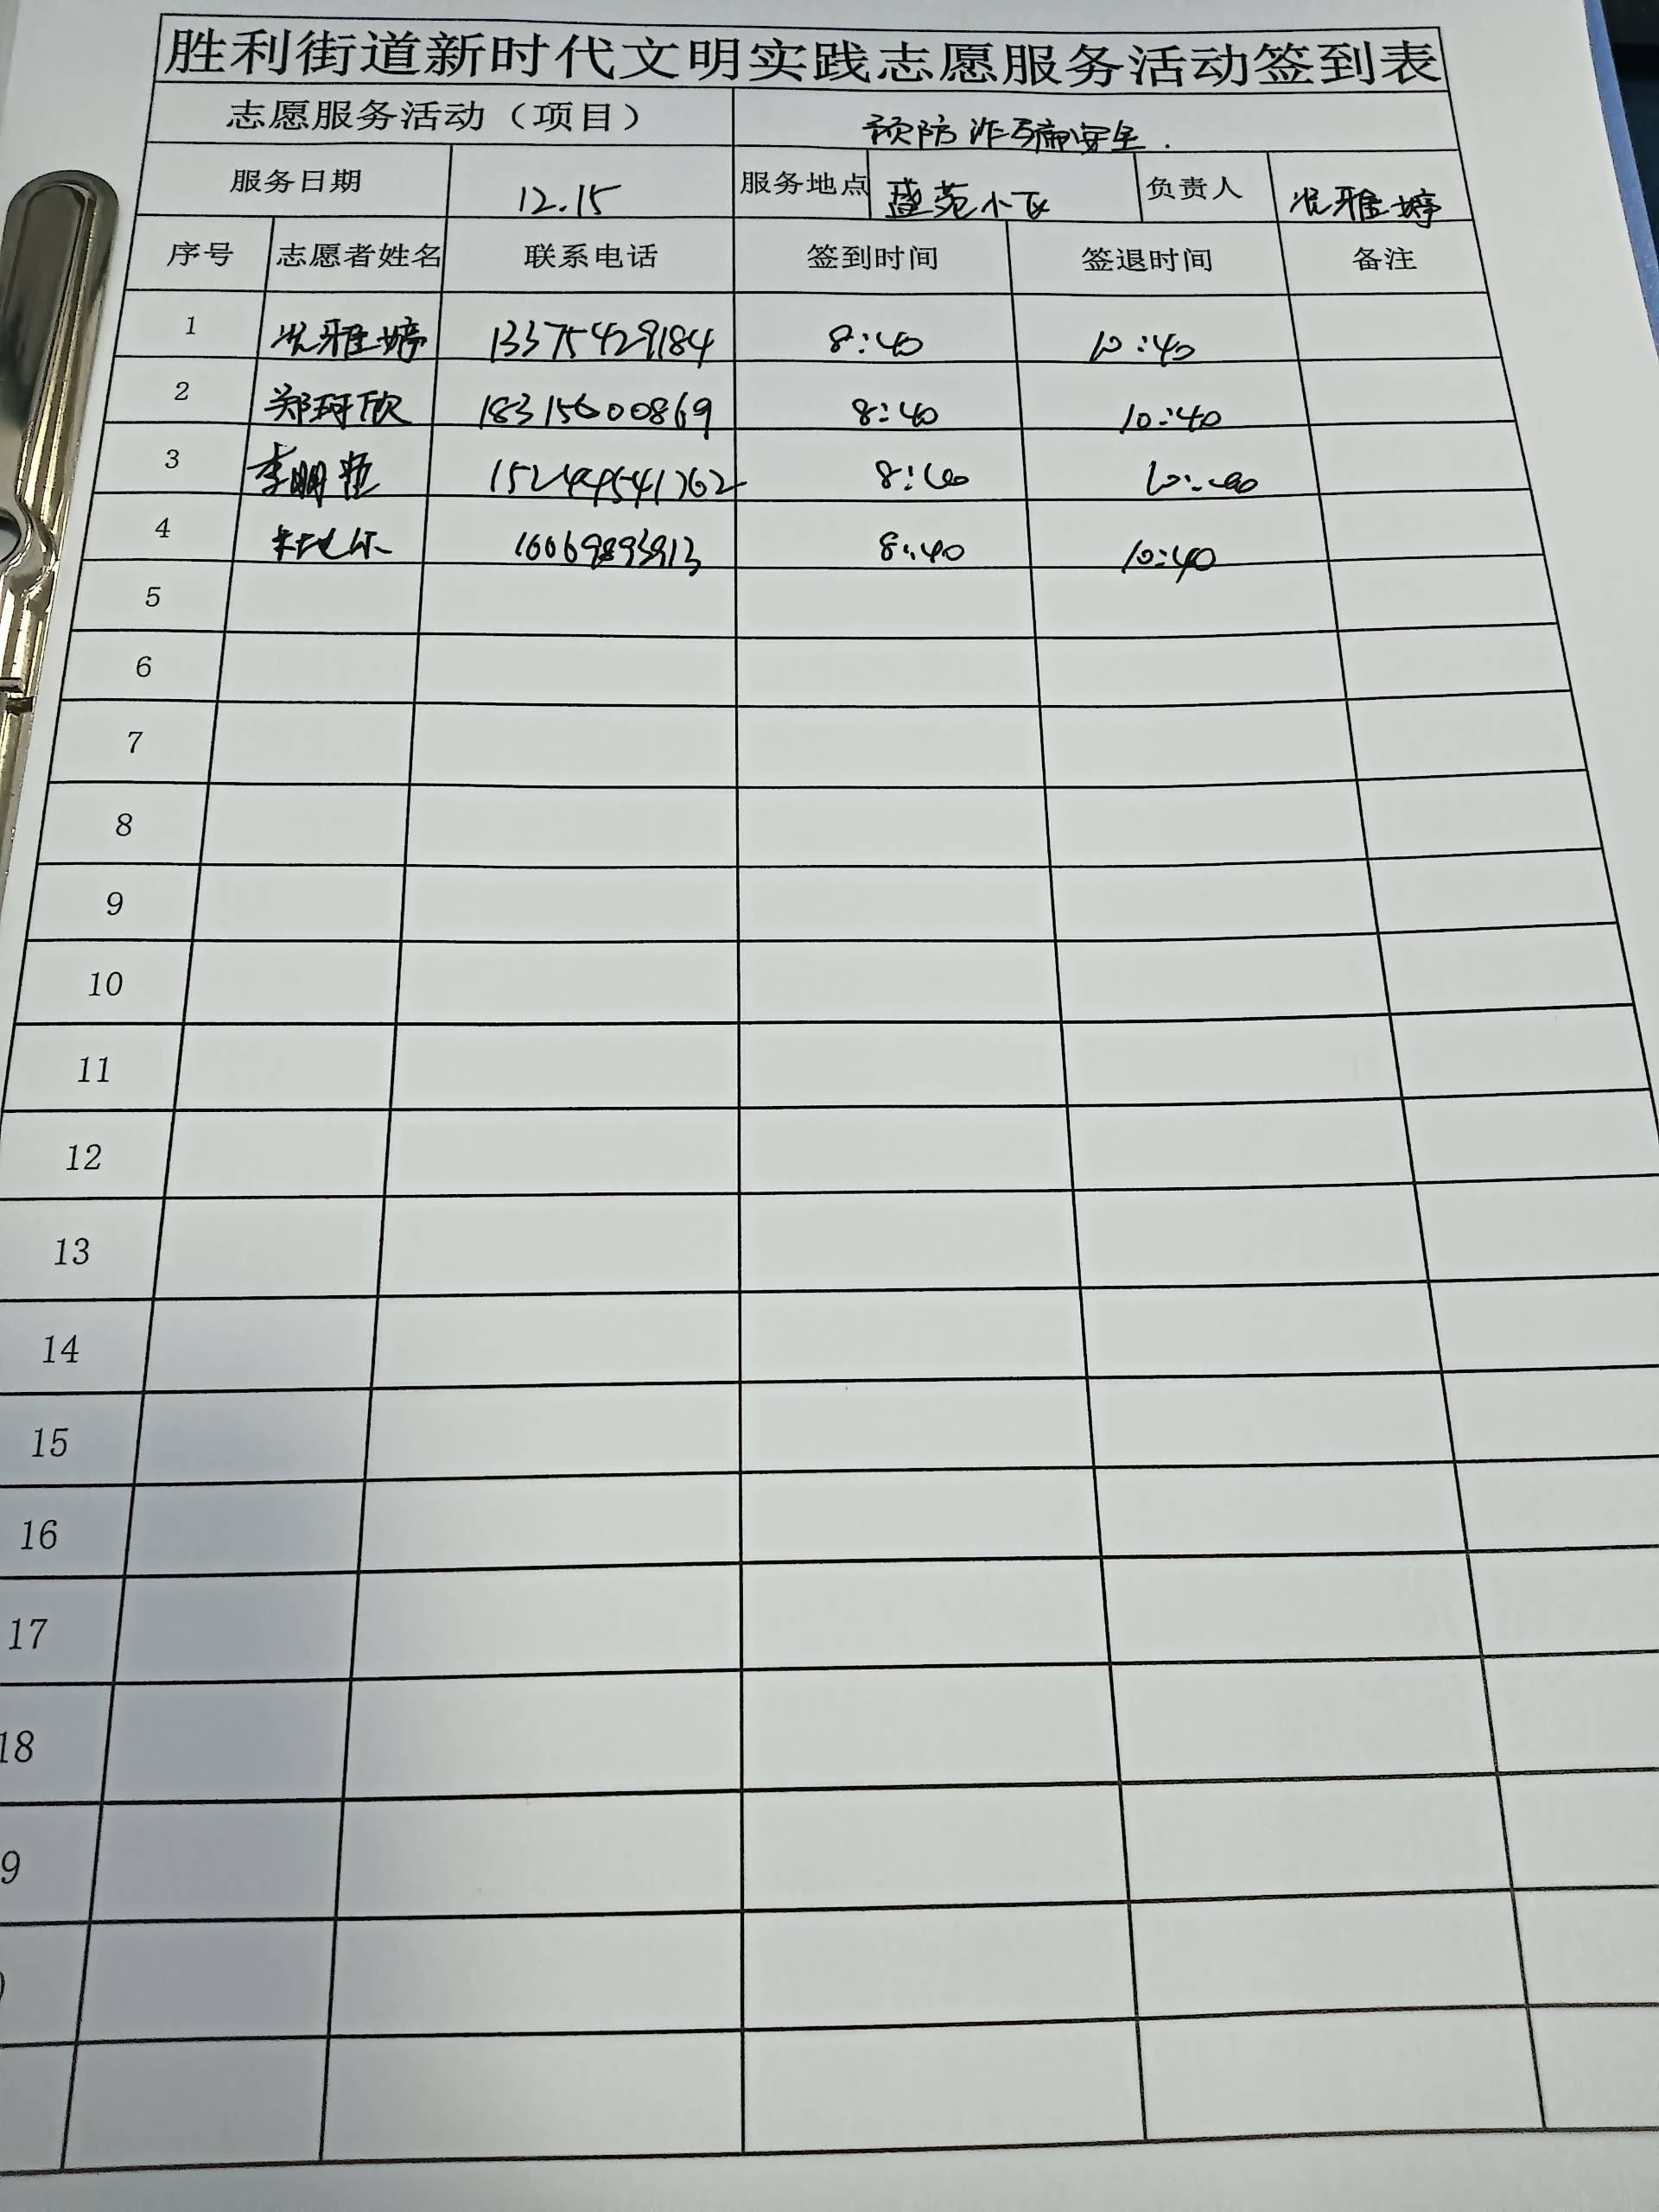 胜利街道新时代文明实践志愿服务活动签到表
志愿服务活动（项目） 预防诈骗安全.
服务日期 12.15 服务地点 盛苑小区 负责人 雅婷
序号 志愿者姓名 联系电话 签到时间 签退时间 备注
1 雅婷 13375429184 8:40 10:40
2 郑珂欣 18315600869 8:40 10:40
3 李明 8:40 10:40
4 16069893913 8:40 10:40
5
6
7
8
9
10
11
12
13
14
15
16
17
18
9